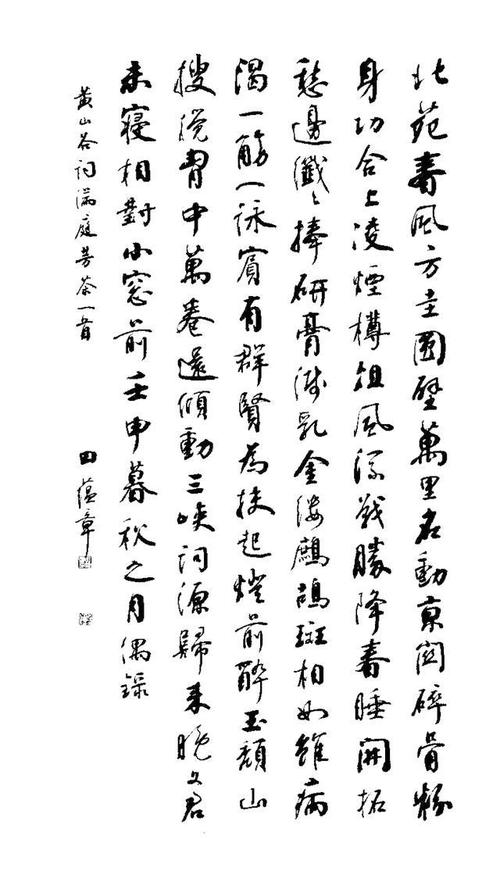 北苑春風方圭圓璧萬里名動京關碎骨粉
身功合上凌煙樽俎風流戰勝降春睡開拓
愁邊纖〻捧研膏濺乳金縷鷓鴣斑相如雖病
渴一觴一詠賓有群賢為扶起燈前醉玉頹山
搜攪胷中萬卷還傾動三峽詞源歸來晚文君
未寢相對小窓前壬申暮秋之月偶錄
黃山谷詞滿庭芳茶一首 田蘊章